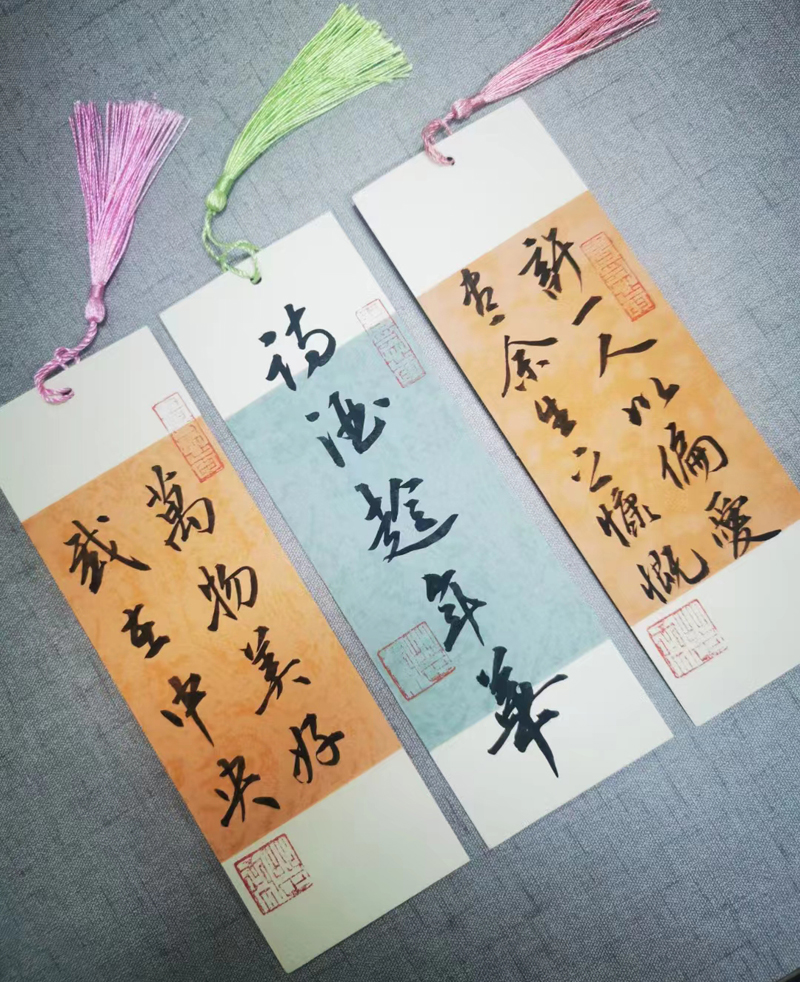 萬物美好
我在中央
诗酒趁年華
许一人以偏愛
尽余生之慷慨